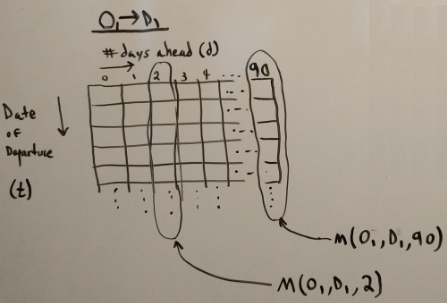 O₁→D₁
# days ahead (d)
0 1 2 3 4 ..... 90
Date
of
Departure
(t)
m(O₁,D₁,90)
M(O₁,D₁,2)